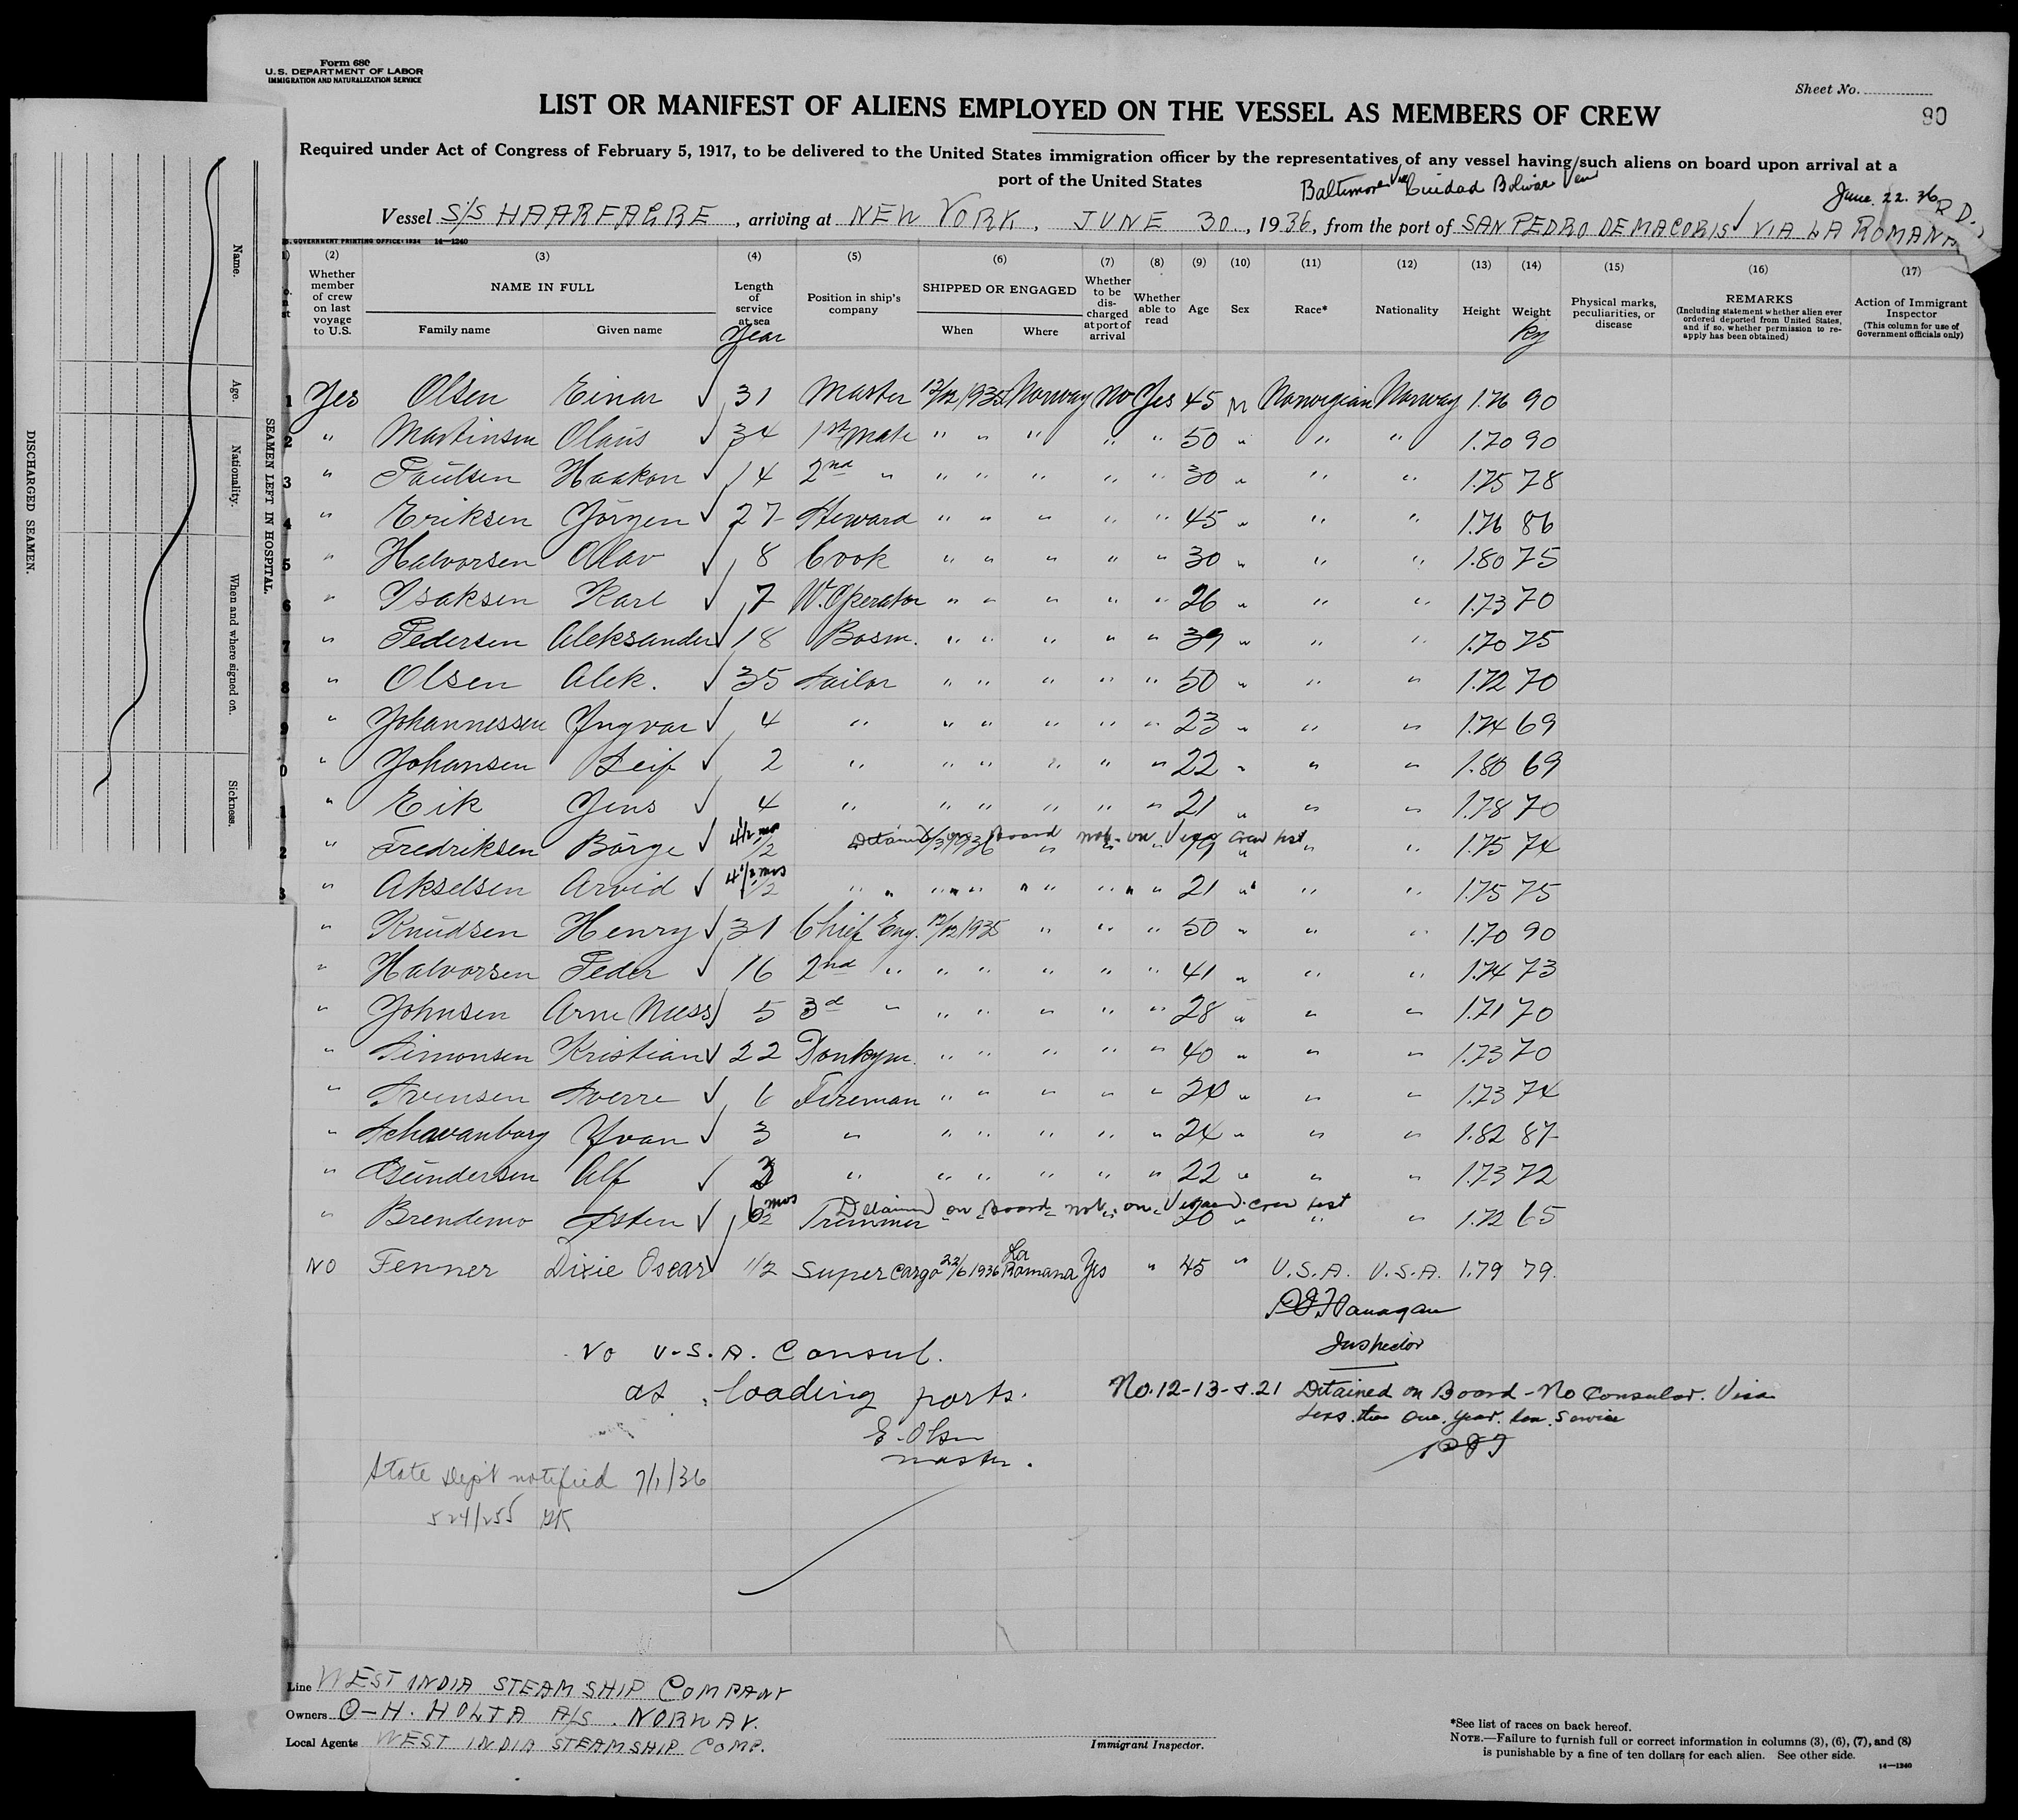 Form 680
U.S. DEPARTMENT OF LABOR
IMMIGRATION AND NATURALIZATION SERVICE
Sheet No.
80
LIST OR MANIFEST OF ALIENS EMPLOYED ON THE VESSEL AS MEMBERS OF CREW
Required under Act of Congress of February 5, 1917, to be delivered to the United States immigration officer by the representatives of any vessel having such aliens on board upon arrival at a
port of the United States
Baltimore via Ciudad Bolivar Ven
June 22. 36
Vessel S/S HAARFAGRE, arriving at NEW YORK, JUNE 30, 1936, from the port of SAN PEDRO DE MACORIS VIA LA ROMANA R D.
GOVERNMENT PRINTING OFFICE: 1934 14—1240
(2) (3) (4) (5) (6) (7) (8) (9) (10) (11) (12) (13) (14) (15) (16) (17)
Whether member of crew on last voyage to U.S.
NAME IN FULL
Family name Given name
Length of service at sea
Year
Position in ship's company
SHIPPED OR ENGAGED
When Where
Whether to be discharged at port of arrival
Whether able to read
Age
Sex
Race*
Nationality
Height
Weight
Kg
Physical marks, peculiarities, or disease
REMARKS
(Including statement whether alien ever ordered deported from United States, and if so, whether permission to reapply has been obtained)
Action of Immigrant Inspector
(This column for use of Government officials only)
1 Yes Olsen Einar ✓ 31 Master 12/12 1935 Norway No Yes 45 M Norwegian Norway 1.76 90
2 " Martinsen Olaus ✓ 34 1st Mate " " " " " 50 " " " 1.70 90
3 " Paulsen Haakon ✓ 14 2nd " " " " " " 30 " " " 1.75 78
4 " Eriksen Jörgen ✓ 27 Steward " " " " " 45 " " " 1.76 86
5 " Halvorsen Olav ✓ 8 Cook " " " " " 30 " " " 1.80 75
6 " Isaksen Karl ✓ 7 W. Operator " " " " " 26 " " " 1.73 70
7 " Pedersen Aleksander ✓ 18 Bosm. " " " " " 39 " " " 1.70 75
8 " Olsen Alek. ✓ 35 Sailor " " " " " 50 " " " 1.72 70
9 " Johannessen Yngvar ✓ 4 " " " " " " 23 " " " 1.74 69
0 " Johansen Leif ✓ 2 " " " " " " 22 " " " 1.80 69
1 " Eik Jens ✓ 4 " " " " " " 21 " " " 1.78 70
2 " Fredriksen Börge ✓ 4 1/2 mos 1/2 Detained on Board not on Visaed crew list " " 1.75 74
3 " Akselsen Arvid ✓ 4 1/2 mos 1/2 " " " " " " 21 " " " 1.75 75
" Knudsen Henry ✓ 31 Chief Eng. 12/12 1935 " " " 50 " " " 1.70 90
" Halvorsen Peder ✓ 16 2nd " " " " " " 41 " " " 1.74 73
" Johnsen Arne Næss ✓ 5 3d " " " " " " 28 " " " 1.71 70
" Simonsen Kristian ✓ 22 Donkym. " " " " " 40 " " " 1.73 70
" Svensen Sverre ✓ 6 Fireman " " " " " 24 " " " 1.73 74
" Schavanborg Yvan ✓ 3 " " " " " " 24 " " " 1.82 87
" Gundersen Alf ✓ 3 " " " " " " 22 " " " 1.73 72
" Brendemo Østen ✓ 6 mos 1/2 Trimmer Detained on Board not on Visaed crew list 20 " " " 1.72 65
NO Fenner Dixie Oscar ✓ 1/2 Supercargo 22/6 1936 La Romana Yes " 45 " U.S.A. U.S.A. 1.79 79.
P J Flanagan
Inspector
No U.S.A. Consul.
at loading ports.
E. Olsen
master.
No. 12-13-&.21 Detained on Board - No Consular Visa
Less than One Year Sea Service
PJF
State Dep't notified 7/1/36
524/255 GK
Line WEST INDIA STEAMSHIP COMPANY
Owners O-H. HOLTA A/S. NORWAY.
Local Agents WEST INDIA STEAMSHIP COMP.
Immigrant Inspector.
*See list of races on back hereof.
NOTE.—Failure to furnish full or correct information in columns (3), (6), (7), and (8)
is punishable by a fine of ten dollars for each alien. See other side.
14—1240
DISCHARGED SEAMEN.
SEAMEN LEFT IN HOSPITAL.
Name.
Age.
Nationality.
When and where signed on.
Sickness.